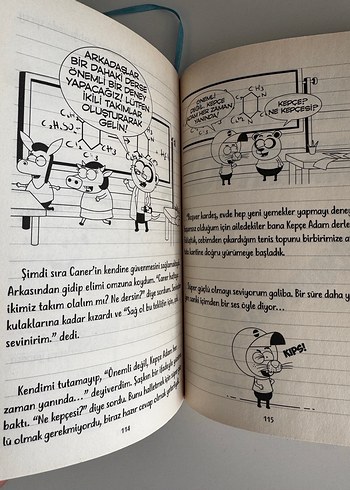 ARKADAŞLAR,
BİR DAHAKİ DERSE
ÖNEMLİ BİR DENEY
YAPACAĞIZ! LÜTFEN
İKİLİ TAKIMLAR
OLUŞTURARAK
GELİN!
CH₃
Şimdi sıra Caner'in kendine güvenmesini
Arkasından gidip elimi omzuna koydum. "Caner
ikimiz takım olalım mı? Ne dersin?" diye sordum.
kulaklarına kadar kızardı ve "Sağ ol bu teklifin için, çok
sevinirim." dedi.
Kendimi tutamayıp, "Önemli değil, Kepçe Adam her
zaman yanında..." deyiverdim. Şaşkın bir ifadeyle
baktı. "Ne kepçesi?" diye sordu. Bunu halletmek için
lü olmak gerekmiyordu, biraz hazır cevap olmak
114
ÖNEMLİ
DEĞİL, KEPÇE
ADAM HER ZAMAN
YANINDA!
CH₃
N
KEPÇE?
NE KEPÇESİ?
kardeş, evde hep yeni yemekler yapmayı
olduğum için ailedekiler bana Kepçe Adam
cebimden çıkardığım tenis topunu birbirimize
kantine doğru yürümeye başladık.
Süper güçlü olmayı seviyorum galiba. Bir süre daha
sanki içimden bir ses öyle diyor...
KIPS!
115